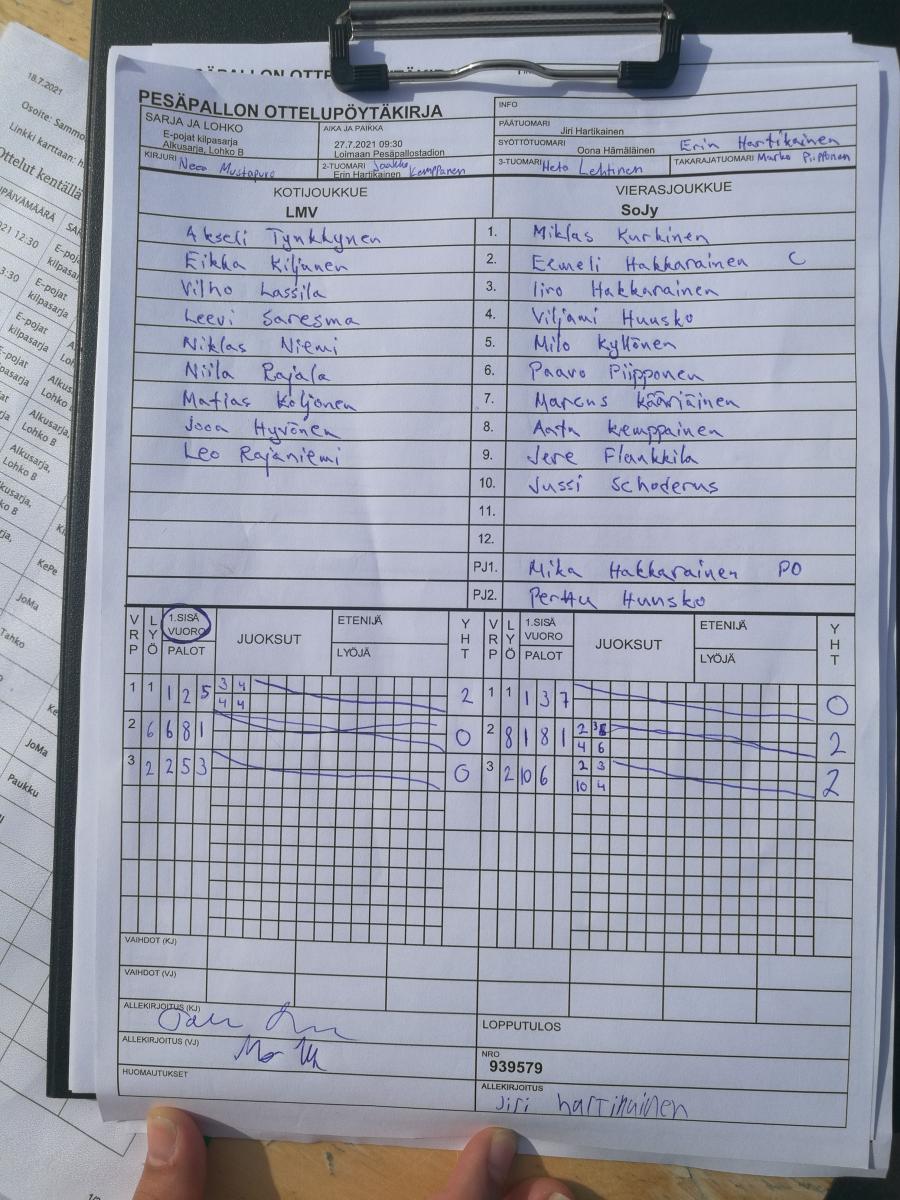 18.7.2021
Osoite: Sammo
Linkki karttaan: h
Ottelut kentällä
PÄIVÄMÄÄRÄ SAR
021 12:30 E-poj
kilpasarja
3:30 E-pojat
kilpasarja
PESÄPALLON OTTELUPÖYTÄKIRJA
INFO
SARJA JA LOHKO
E-pojat kilpasarja
Alkusarja, Lohko B
AIKA JA PAIKKA
27.7.2021 09:30
Loimaan Pesäpallostadion
PÄÄTUOMARI
Jiri Hartikainen
SYÖTTÖTUOMARI Oona Hämäläinen Erin Hartikainen
KIRJURI Neea Mustapuro
2-TUOMARI Jaakko Kemppanen
Erin Hartikainen
3-TUOMARI Neto Lehtinen
TAKARAJATUOMARI Marko Piipponen
KOTIJOUKKUE VIERASJOUKKUE
LMV SoJy
Akseli Tynkkynen 1. Miklas Kurhinen
Eikka Kiljunen 2. Eemeli Hakkarainen C
Vilho Lassila 3. Iiro Hakkarainen
Leevi Saresma 4. Viljami Huusko
Niklas Niemi 5. Milo Kyllönen
Niila Rajala 6. Paavo Piipponen
Matias Koljonen 7. Marcus Kääriäinen
Jooa Hyvönen 8. Aatu Kemppainen
Leo Rajaniemi 9. Jere Flankkila
10. Jussi Schoderus
11.
12.
PJ1. Mika Hakkarainen PO
PJ2. Perttu Huusko
VRP LYÖ 1.SISÄ VUORO PALOT JUOKSUT ETENIJÄ LYÖJÄ YHT VRP LYÖ 1.SISÄ VUORO PALOT JUOKSUT ETENIJÄ LYÖJÄ YHT
1 1 1 2 5 3 4 2 1 1 1 3 7 0
4 4
2 6 6 8 1 0 2 8 1 8 1 2 2
4 6
3 2 2 5 3 0 3 2 10 6 2 3 2
10 4
VAIHDOT (KJ)
VAIHDOT (VJ)
ALLEKIRJOITUS (KJ)
LOPPUTULOS
ALLEKIRJOITUS (VJ)
NRO
939579
HUOMAUTUKSET
ALLEKIRJOITUS
Jiri hartikainen